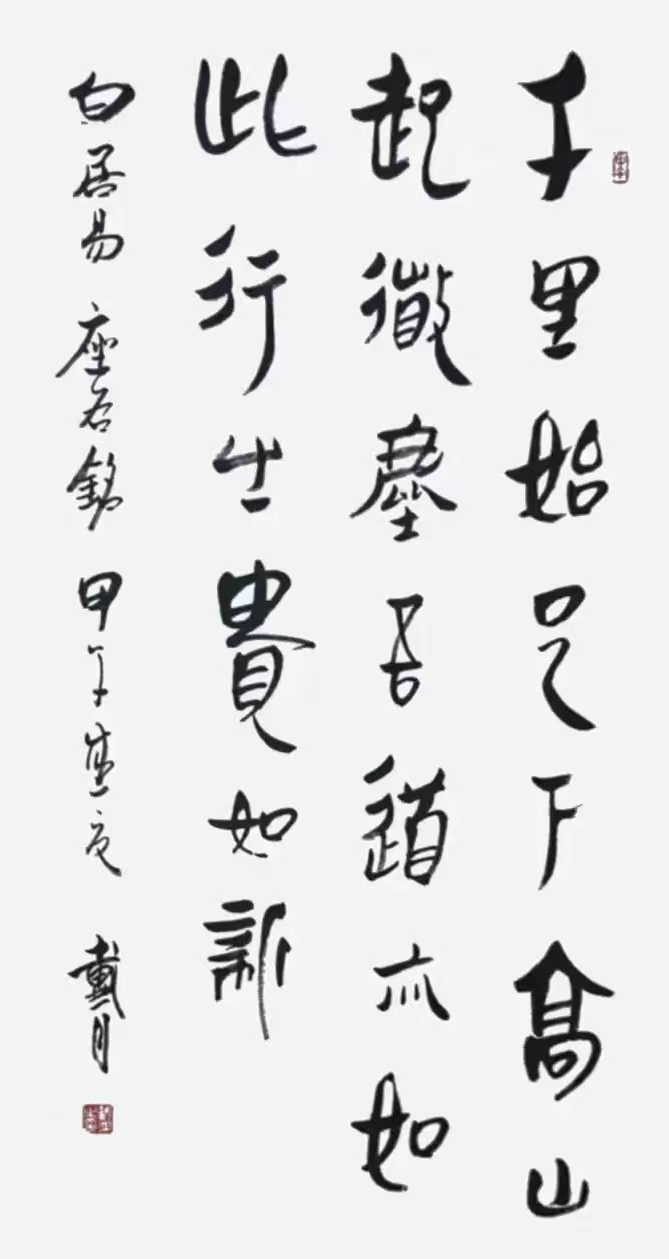 千里始足下高山
起微塵吾道亦如
此行之貴如新
白居易座右銘甲午盛夏戴月